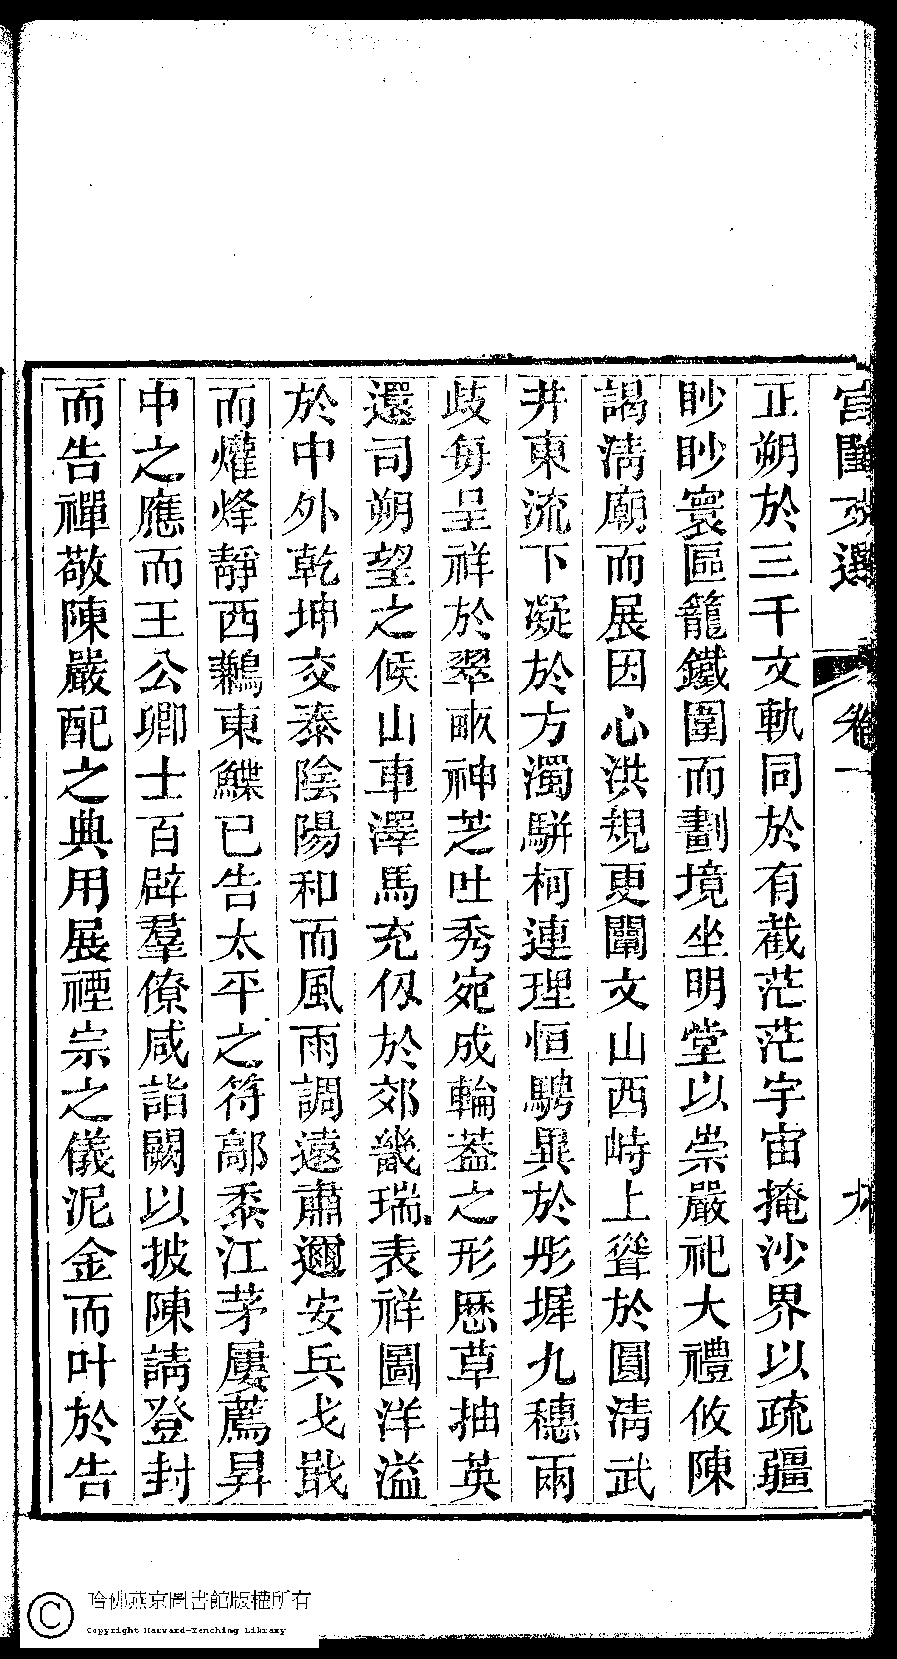 宫閨文選 卷一 九
正朔於三千文軌同於有截茫茫宇宙掩沙界以疏疆
眇眇寰區籠鐵圍而劃境坐明堂以崇嚴祀大禮攸陳
謁淸廟而展因心洪規更闡文山西峙上聳於圓淸武
井東流下凝於方濁騈柯連理恒騁異於彤墀九穗兩
歧每呈祥於翠畝神芝吐秀宛成輪葢之形厯草抽英
還司朔望之候山車澤馬充仭於郊畿瑞表祥圖洋溢
於中外乾坤交泰陰陽和而風雨調遠肅邇安兵戈戢
而爟烽靜西鶼東鰈已告太平之符鄗黍江茅屢薦昇
中之應而王公卿士百辟羣僚咸詣闕以披陳請登封
而告禪敬陳嚴配之典用展禋宗之儀泥金而叶於告
哈佛燕京圖書館版權所有
Copyright Harvard-Yenching Library